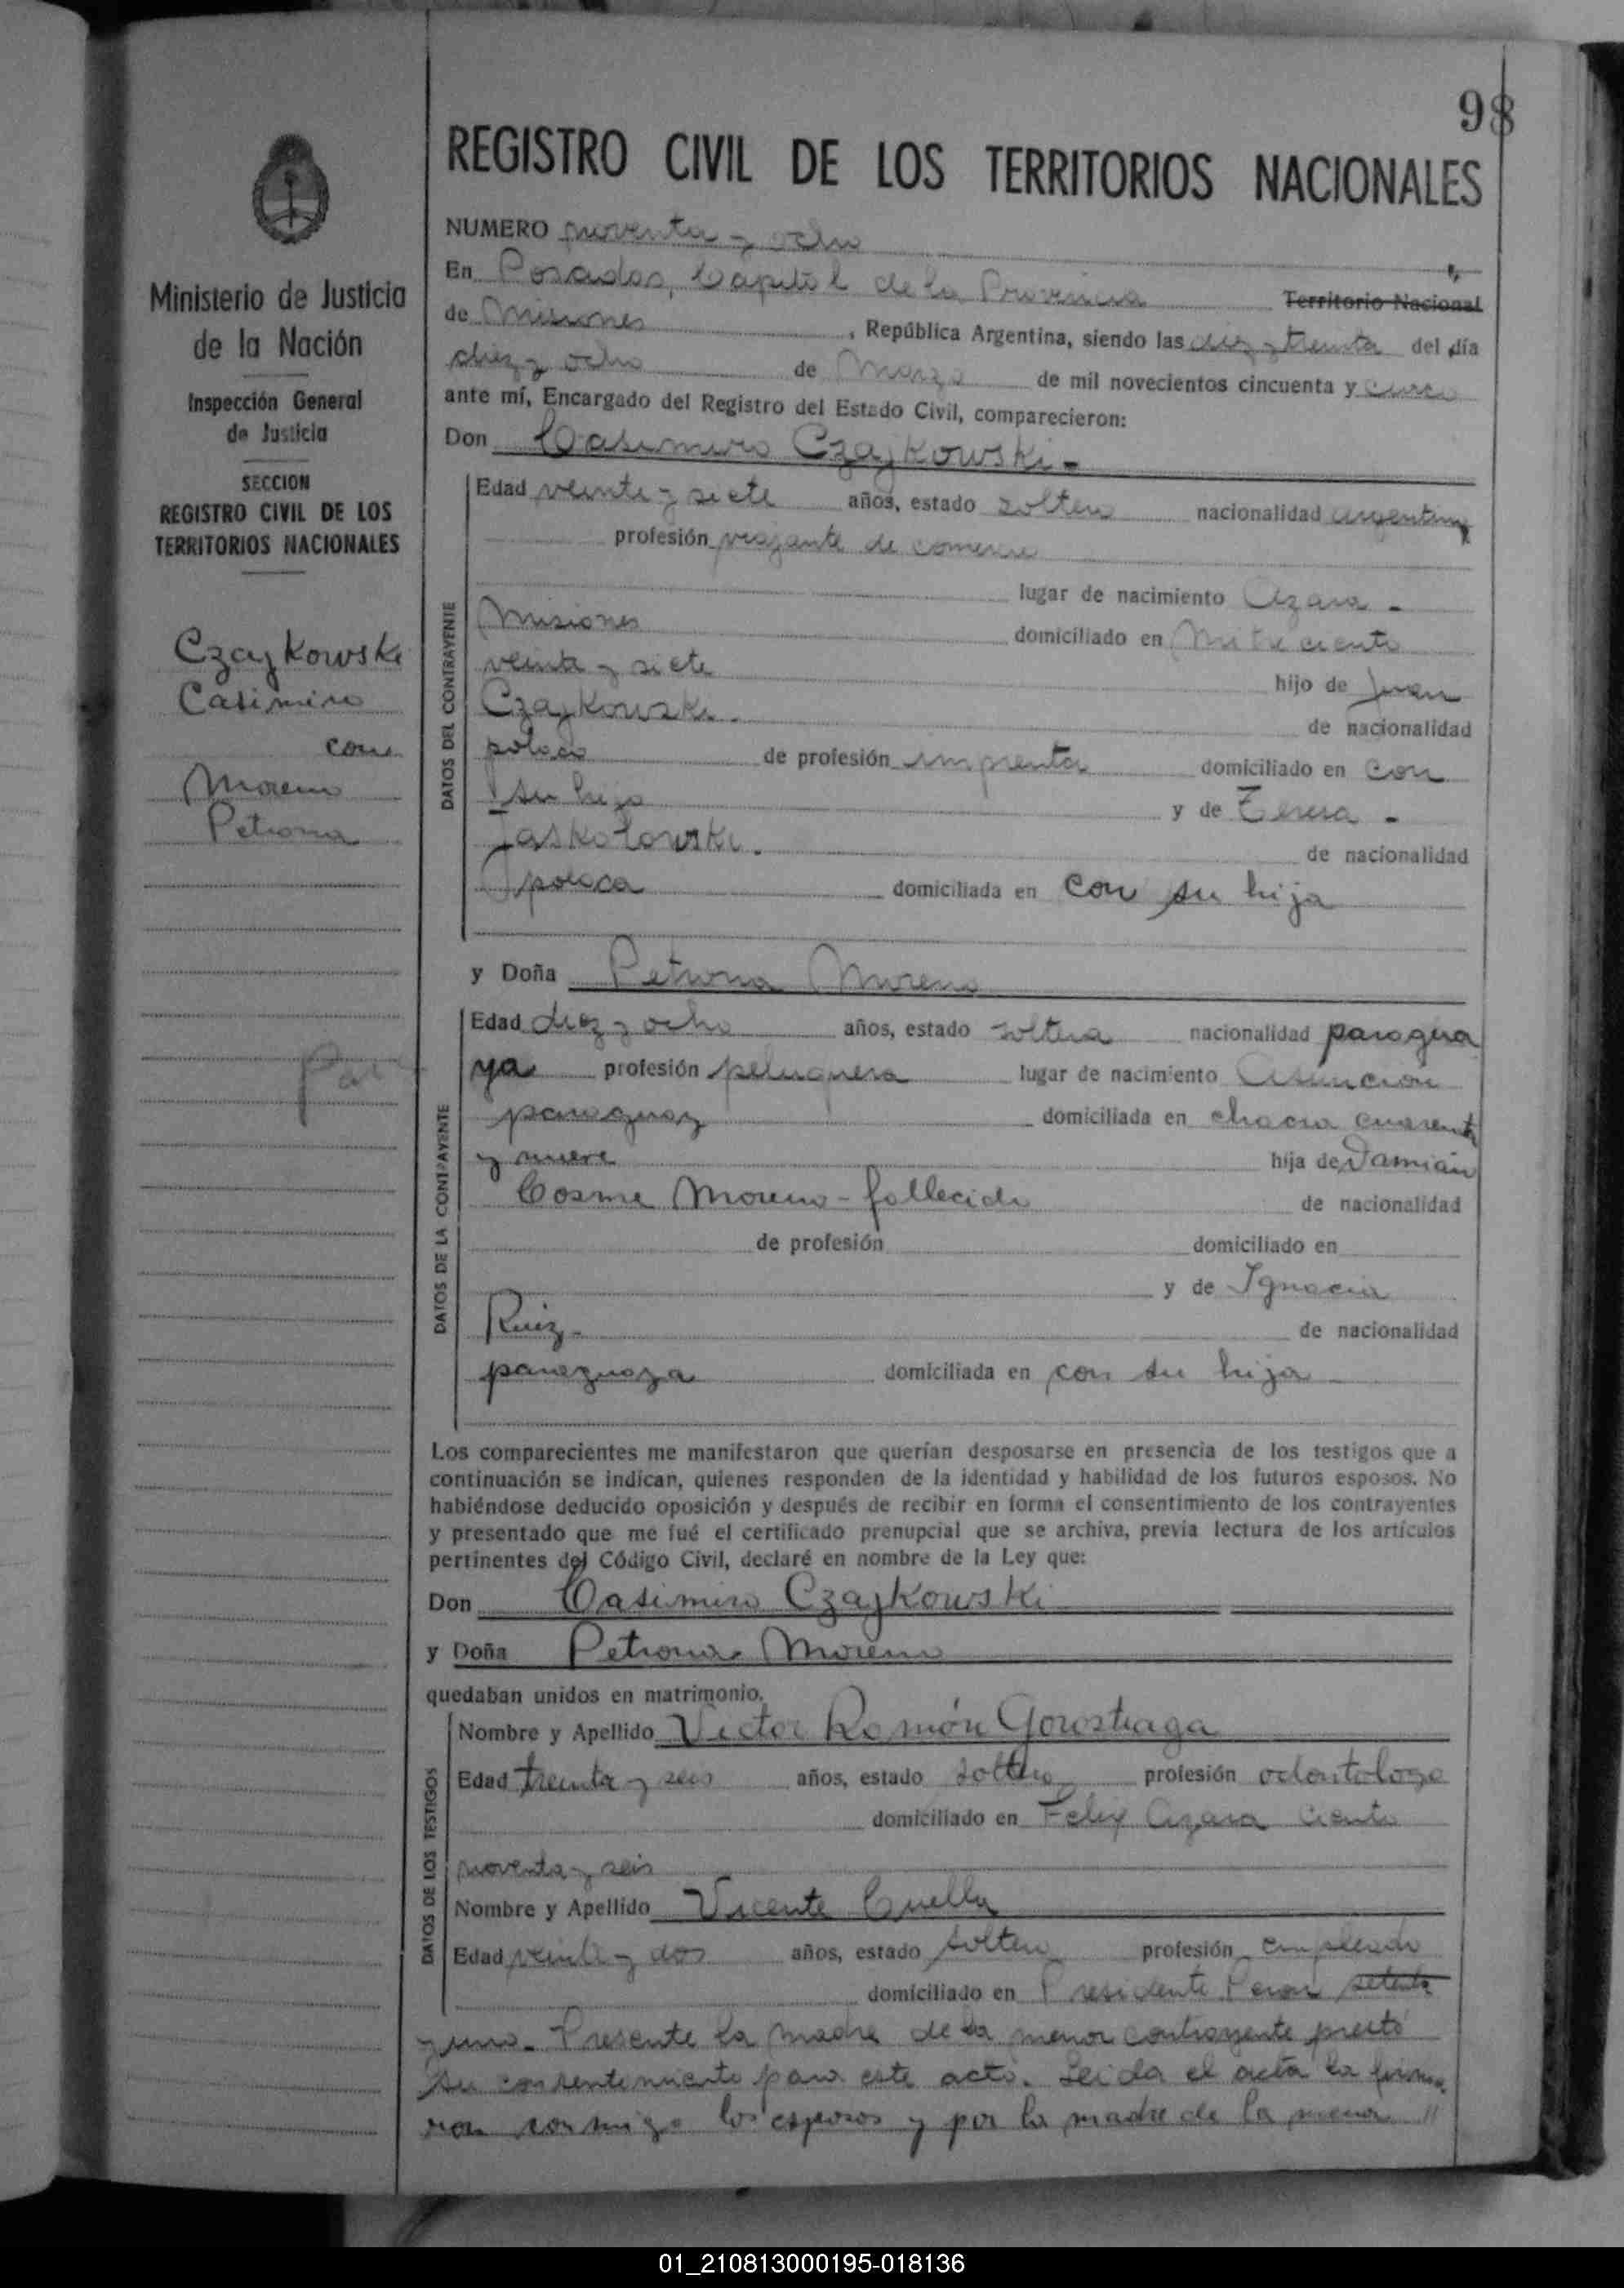 98
REGISTRO CIVIL DE LOS TERRITORIOS NACIONALES
Ministerio de Justicia
de la Nación
Inspección General
de Justicia
SECCION
REGISTRO CIVIL DE LOS
TERRITORIOS NACIONALES
Czajkowski
Casimiro
con
Moreno
Petrona
NUMERO noventa y ocho
En Posadas, Capital de la Provincia Territorio Nacional
de Misiones, República Argentina, siendo las diez y treinta del día
diez y ocho de Marzo de mil novecientos cincuenta y cinco
ante mí, Encargado del Registro del Estado Civil, comparecieron:
Don Casimiro Czajkowski-
DATOS DEL CONTRAYENTE
Edad veinte y siete años, estado soltero nacionalidad argentina
profesión viajante de comercio
lugar de nacimiento Azara -
Misiones domiciliado en Mitre ciento
veinte y siete hijo de Juan
Czajkowski. de nacionalidad
polaca de profesión imprenta domiciliado en con
su hijo y de Teresa -
Jaskolowski. de nacionalidad
polaca domiciliada en con su hija
y Doña Petrona Moreno
DATOS DE LA CONTRAYENTE
Edad diez y ocho años, estado soltera nacionalidad paragua
ya profesión peluquera lugar de nacimiento Asunción
paraguay domiciliada en chacra cuarenta
y nueve hija de Damián
Cosme Moreno - fallecido de nacionalidad
de profesión domiciliado en
y de Ignacia
Ruiz. de nacionalidad
paraguaya domiciliada en con su hija
Los comparecientes me manifestaron que querían desposarse en presencia de los testigos que a
continuación se indican, quienes responden de la identidad y habilidad de los futuros esposos. No
habiéndose deducido oposición y después de recibir en forma el consentimiento de los contrayentes
y presentado que me fué el certificado prenupcial que se archiva, previa lectura de los artículos
pertinentes del Código Civil, declaré en nombre de la Ley que:
Don Casimiro Czajkowski
y Doña Petrona Moreno
quedaban unidos en matrimonio.
DATOS DE LOS TESTIGOS
Nombre y Apellido Victor Ramón Gorostiaga
Edad treinta y seis años, estado soltero profesión odontologo
domiciliado en Felix Azara ciento
noventa y seis
Nombre y Apellido Vicente Cuella
Edad veinte y dos años, estado soltero profesión empleado
domiciliado en Presidente Peron setenta
y uno. Presente la madre de la menor contrayente prestó
su consentimiento para este acto. Leida el acta la firma
ron conmigo los esposos y por la madre de la menor //
01_210813000195-018136